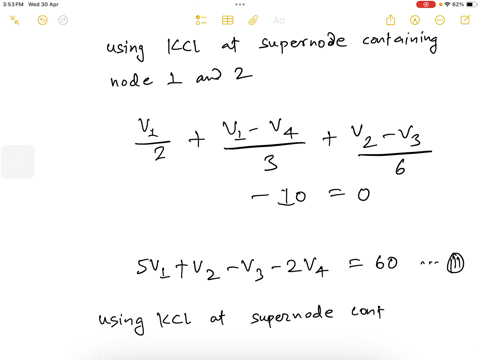 3:53 PM Wed 30 Apr
62%
Aa
using KCL at supernode containing
node 1 and 2
V1/2 + (V1 - V4)/3 + (V2 - V3)/6
- 10 = 0
5V1 + V2 - V3 - 2V4 = 60 ... (III)
using KCL at supernode cont